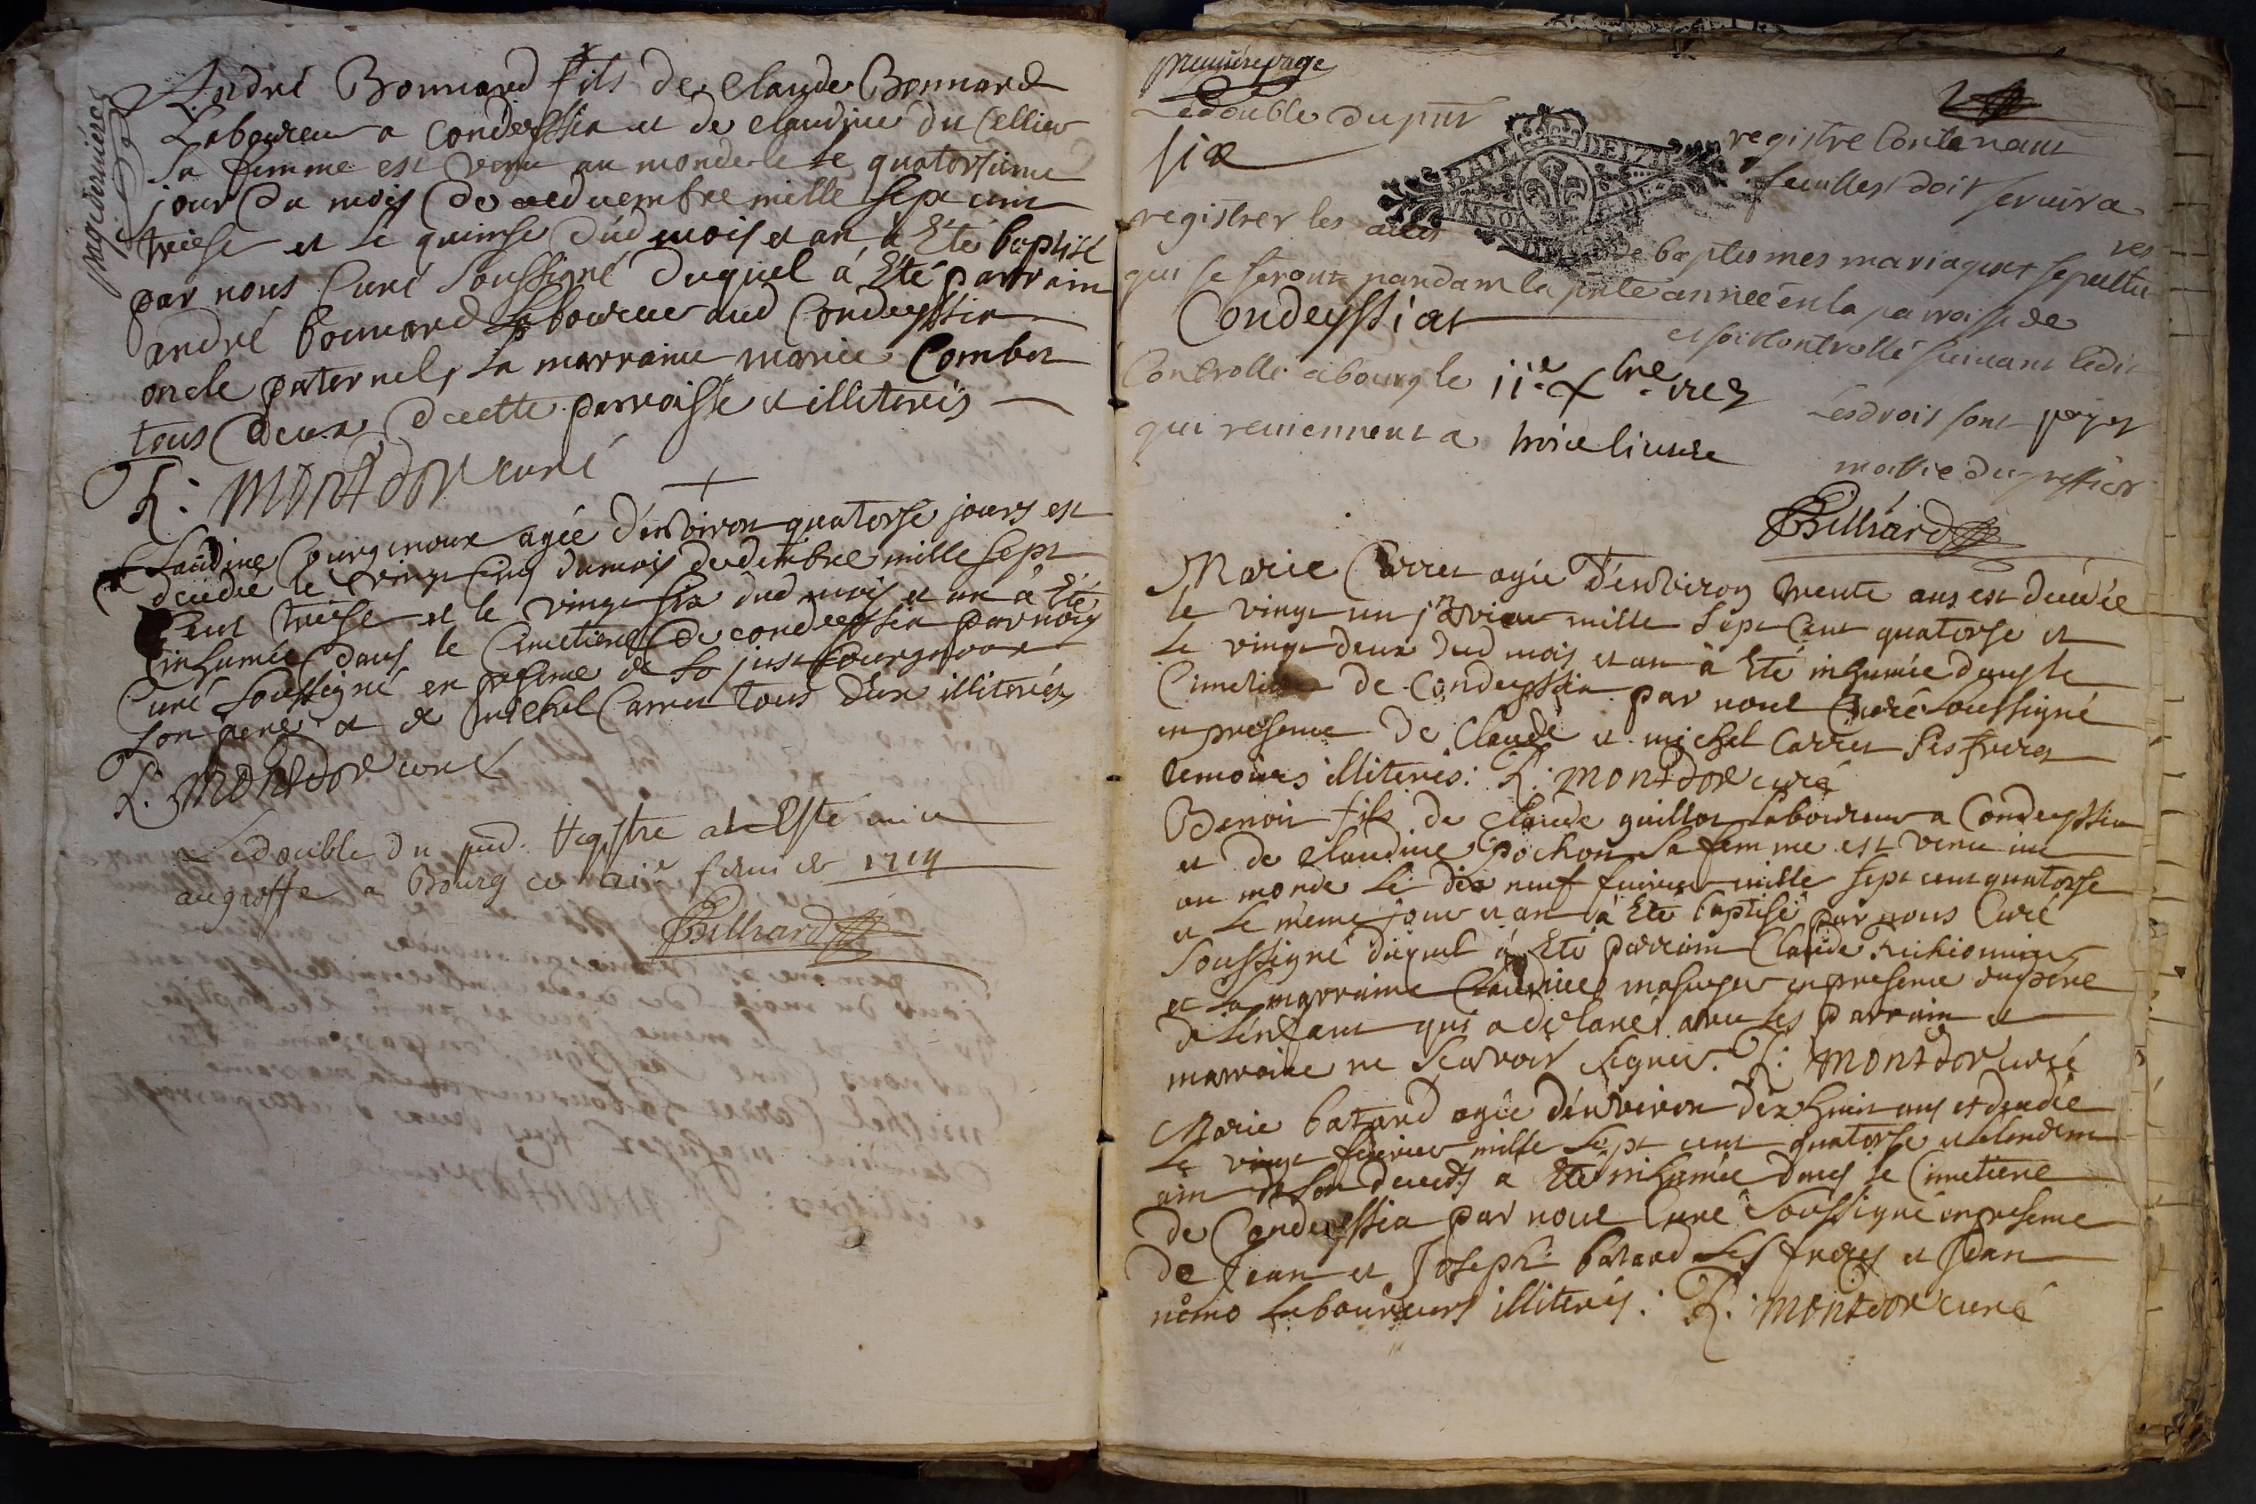 page derniere
André Bonnard fils de Claude Bonnard
Laboureur a Condeyssia et de Claudine du Cellier
sa femme est venu au monde le le quatorsieme
jour du mois de decembre mille sept cent
treise et le quinse dud mois et an a Eté baptisé
par nous Curé soussigné duquel á Eté parrain
andré bonnard laboureur aud Condeyssia
oncle paternel, la marraine marie Combet
tous deux dcette parroisse et illiterés
R: MONTdOR curé
+
Claudine agée d'environ quatorse jours est
decedée le vingt cinq du mois de decembre mille sept
Cent treise et le vingt six dud mois et an à Eté
inhumée dans le Cimetiere de condeyssia par nous
Curé soussigné en presence de
son pere et de michel Carret tous deux illiterés
R: MONTdOR curé
Le double du pnt. Registre a Esté mis
au greffe a Bourg ce fevrier 1714
Billiard
premiere page
Le double du pnt
registre Contenant
six
feuilles doit servir a
BAIL DE
registrer les actes
de baptesmes mariages et sepultu
res
qui se feront pandant la pnte année en la parroisse de
Condeyssiat
et soit Controllé suivant ledit
Controllé a bourg le 11e Xbre
Les drois sont payes
qui reviennent a trois livres
moitie du greffier
Billiard
Marie Carret agée d'environ trente ans est decedée
le vingt un janvier mille sept cent quatorse et
le vingt deux dud mois et an à Eté inhumée dans le
Cimetiere de Condeyssia par nous Curé soussigné
en presence de Claude et michel Carret ses freres
temoins illiterés: R: MONTdOR curé
Benoit fils de Claude guillot laboureur a Condeyssia
et de Claudine pochon sa femme est venu
au monde le dix neuf fevrier mille sept cent quatorse
et le même jour et an à Eté baptisé par nous Curé
soussigné duquel à Eté parrain Claude
et la marraine Claudine en presence du pere
de l'enfant qui a declaré avec les parrain et
marraine ne scavoir signer. R: MONTdOR curé
Marie batard agée d'environ dix huit ans et decedée
le vingt fevrier mille sept cent quatorse et le lendem
ain de son deceds a Eté inhumée dans le Cimetiere
de Condeyssia par nous Curé soussigné en presence
de Jean et Joseph batard ses freres et Jean
laboureurs illiterés: R: MONTdOR curé